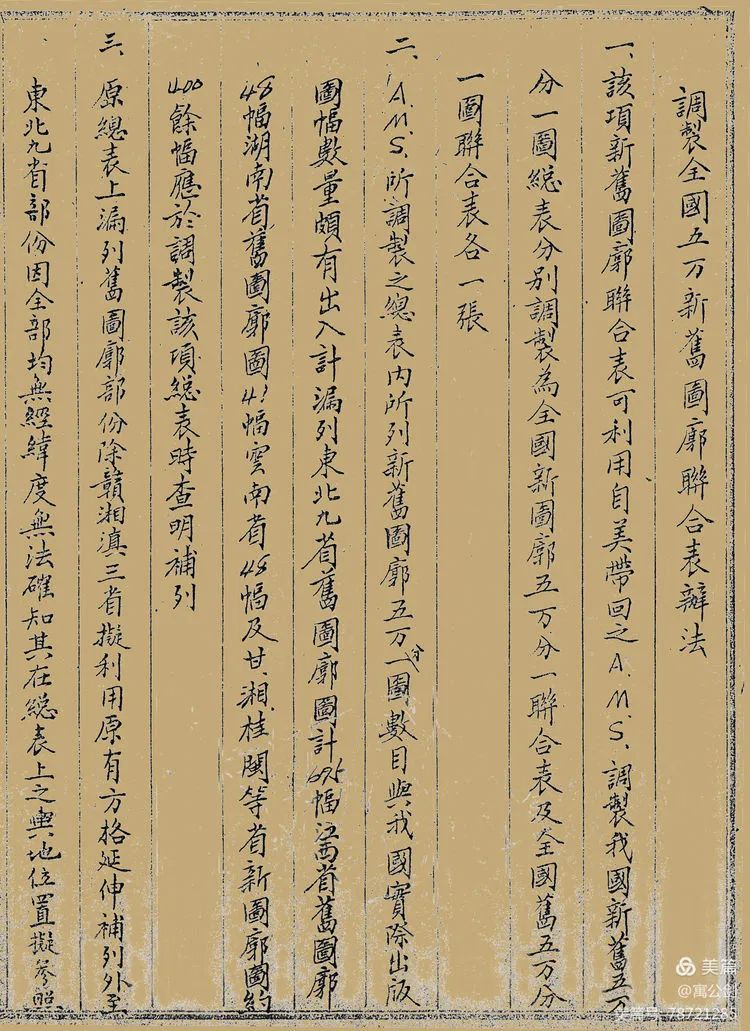 調製全國五万新舊圖廓聯合表辦法
一、該項新舊圖廓聯合表可利用自美帶回之A.M.S.調製我國新舊五万
分一圖総表分別調製為全國新圖廓五万分一聯合表及全國舊五万分
一圖聯合表各一張
二、A.M.S.所調製之總表內所列新舊圖廓五万分一圖數目與我國實際出版
圖幅數量頗有出入計漏列東北九省舊圖廓圖計695幅江西省舊圖廓
48幅湖南省舊圖廓圖41幅雲南省48幅及甘、湘、桂、閩等省新圖廓圖約
400餘幅應於調製該項総表時查明補列
三、原總表上漏列舊圖廓部份除贛湘滇三省擬利用原有方格延伸補列外至
東北九省部份因全部均無經緯度無法確知其在総表上之輿地位置擬參照
美篇
@寓公
美篇号 78721285